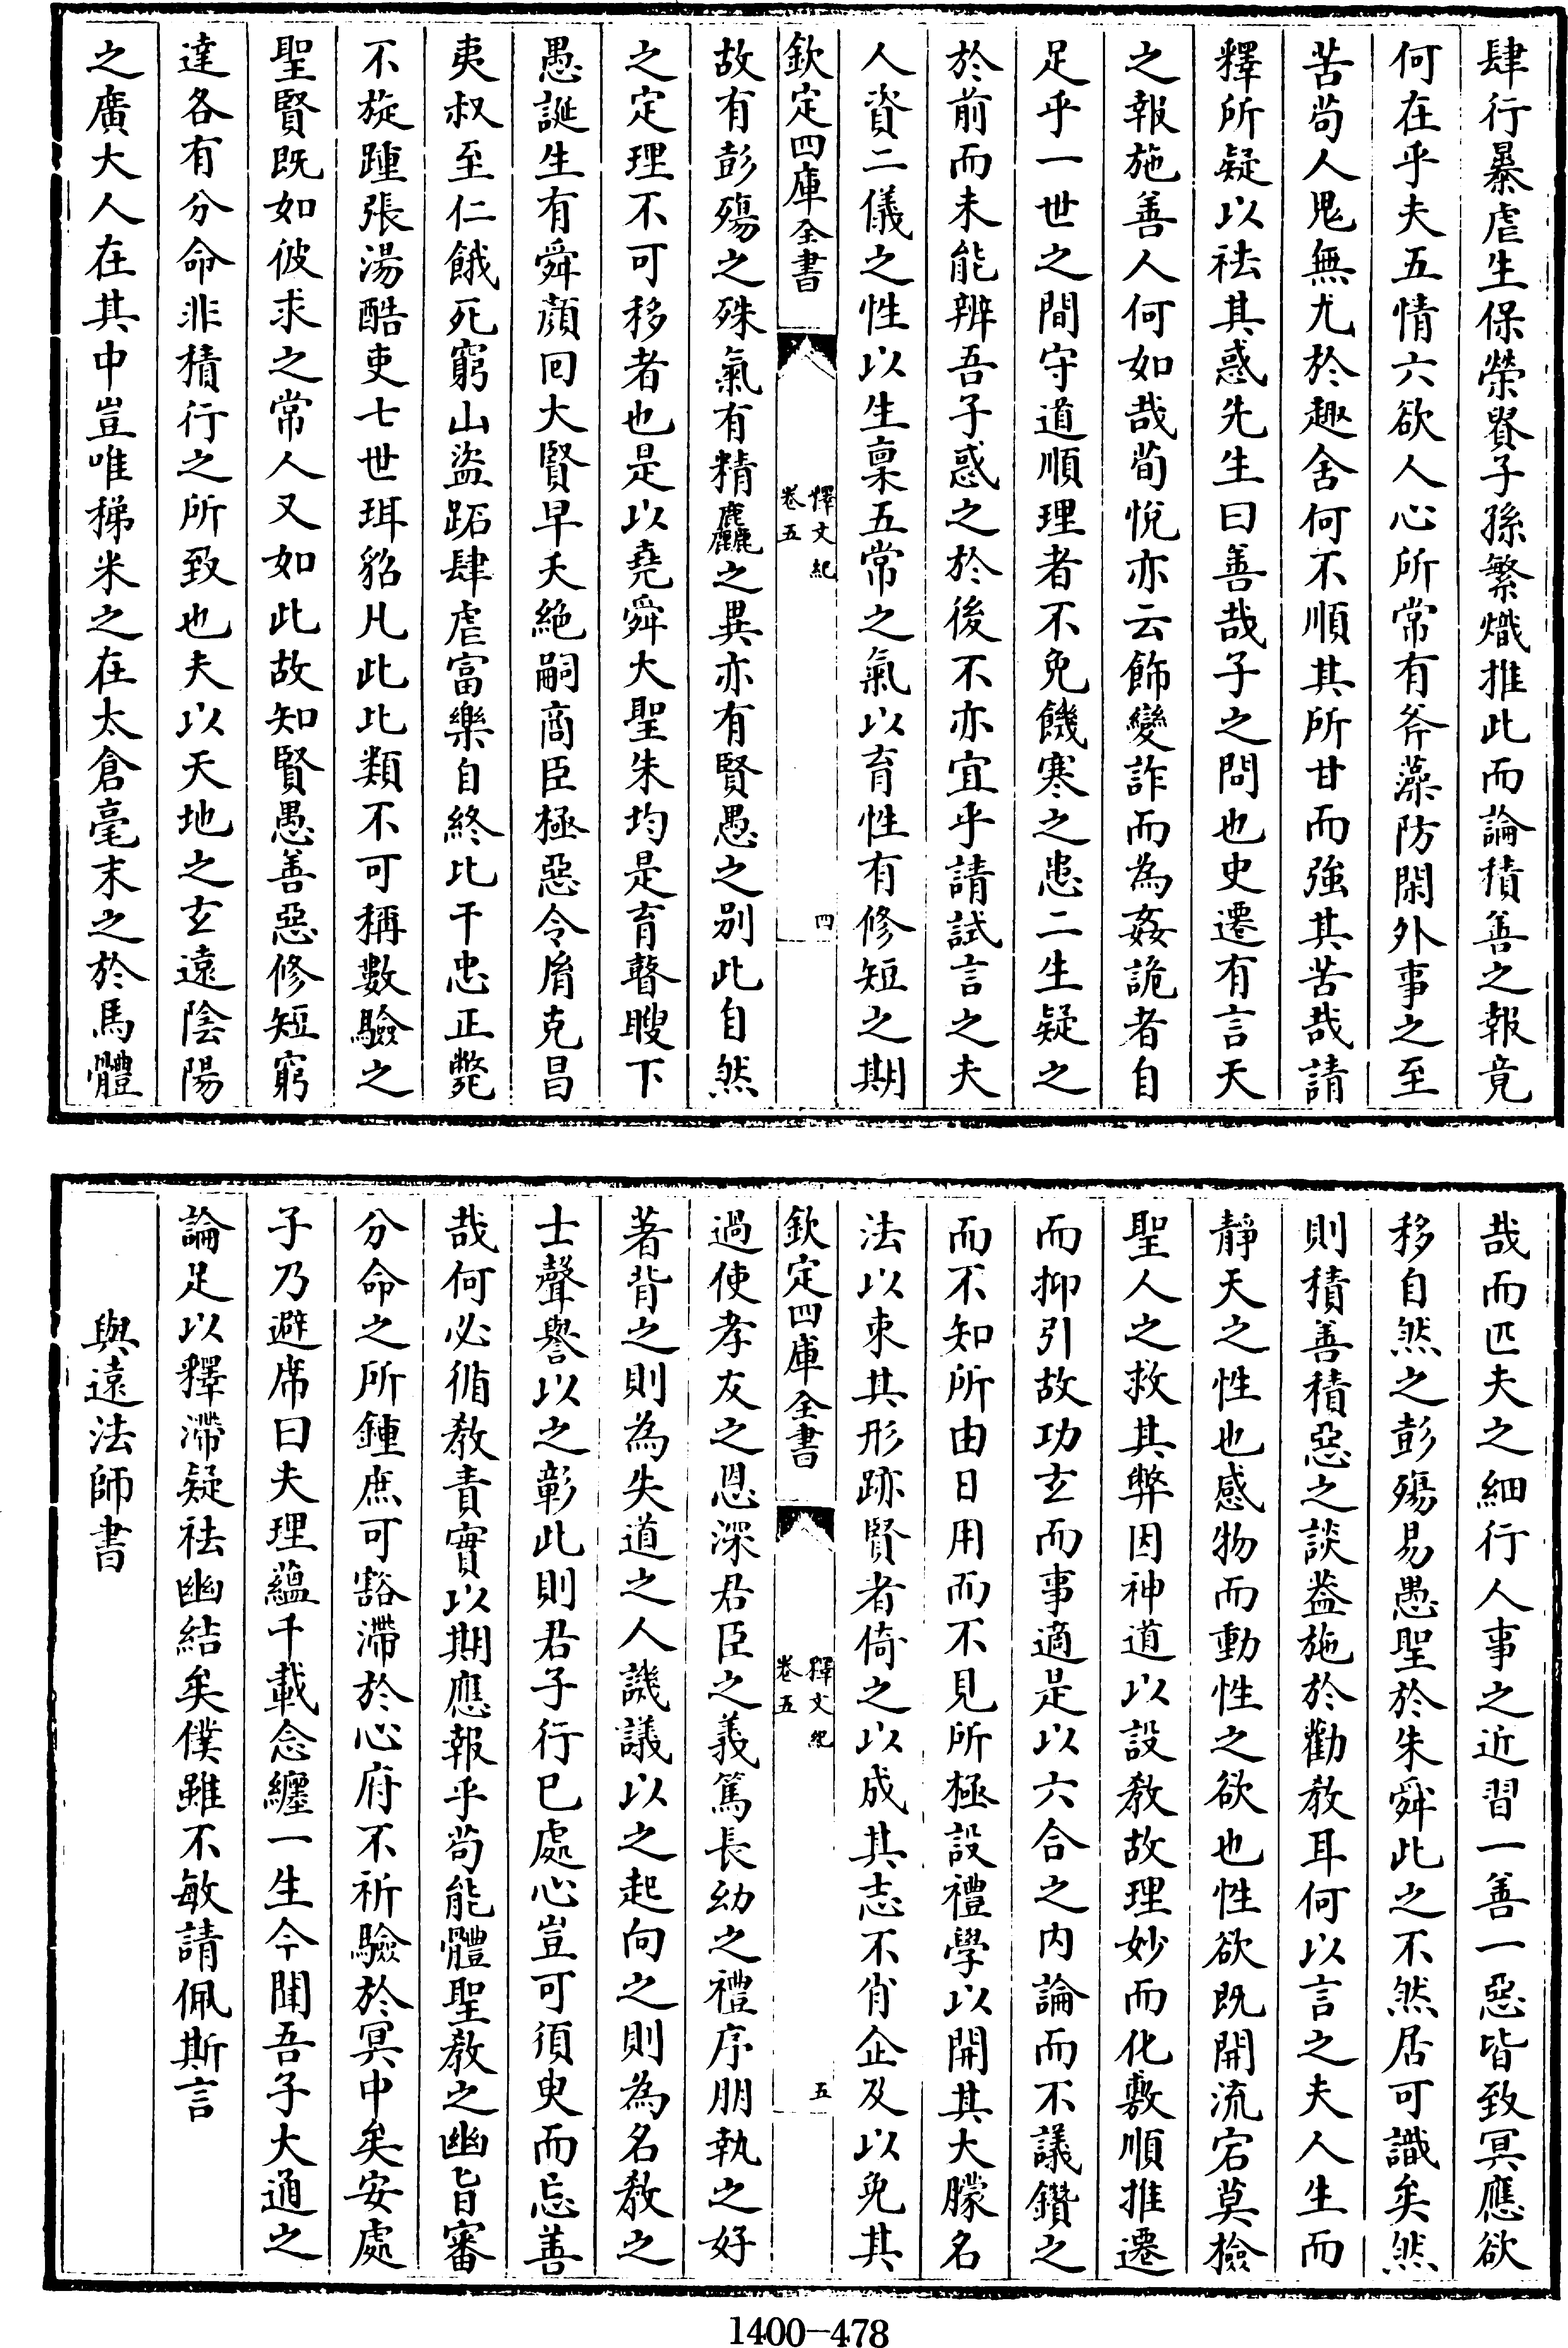 肆行暴虐生保榮貴子孫繁熾推此而論積善之報竟
何在乎夫五情六欲人心所常有斧藻防閑外事之至
苦苟人鬼無尤於趣舍何不順其所甘而強其苦哉請
釋所疑以袪其惑先生曰善哉子之問也史遷有言天
之報施善人何如哉荀悅亦云飾變詐而為姦詭者自
足乎一世之間守道順理者不免饑寒之患二生疑之
於前而未能辨吾子惑之於後不亦宜乎請試言之夫
人資二儀之性以生稟五常之氣以育性有修短之期
欽定四庫全書
釋文紀
卷五
四
故有彭殤之殊氣有精麤之異亦有賢愚之別此自然
之定理不可移者也是以堯舜大聖朱均是育瞽瞍下
愚誕生有舜顏回大賢早夭絕嗣商臣極惡令胤克昌
夷叔至仁餓死窮山盜跖肆虐富樂自終比干忠正斃
不旋踵張湯酷吏七世珥貂凡此比類不可稱數驗之
聖賢既如彼求之常人又如此故知賢愚善惡修短窮
達各有分命非積行之所致也夫以天地之玄遠陰陽
之廣大人在其中豈唯稊米之在太倉毫末之於馬體
哉而匹夫之細行人事之近習一善一惡皆致冥應欲
移自然之彭殤易愚聖於朱舜此之不然居可識矣然
則積善積惡之談蓋施於勸教耳何以言之夫人生而
靜天之性也感物而動性之欲也性欲既開流宕莫檢
聖人之救其弊因神道以設教故理妙而化敷順推遷
而抑引故功玄而事適是以六合之內論而不議鑽之
而不知所由日用而不見所極設禮學以開其大矇名
法以束其形跡賢者倚之以成其志不肖企及以免其
欽定四庫全書
釋文紀
卷五
五
過使孝友之恩深君臣之義篤長幼之禮序朋執之好
著背之則為失道之人譏議以之起向之則為名教之
士聲譽以之彰此則君子行已處心豈可須臾而忘善
哉何必循教責實以期應報乎苟能體聖教之幽旨審
分命之所鍾庶可豁滯於心府不祈驗於冥中矣安處
子乃避席曰夫理蘊千載念纏一生今聞吾子大通之
論足以釋滯疑袪幽結矣僕雖不敏請佩斯言
與遠法師書
1400—478